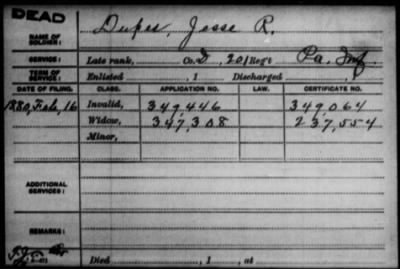 DEAD
NAME OF SOLDIER: Dupes, Jesse R.
SERVICE: Late rank, Co. D, 201 Reg't Pa. Inf.
TERM OF SERVICE: Enlisted , 1 Discharged , 1
DATE OF FILING. CLASS. APPLICATION NO. LAW. CERTIFICATE NO.
1880, Feb, 16 Invalid, 349,446 349,064
Widow, 347,308 237,554
Minor,
ADDITIONAL SERVICES:
REMARKS:
Died , 1 , at